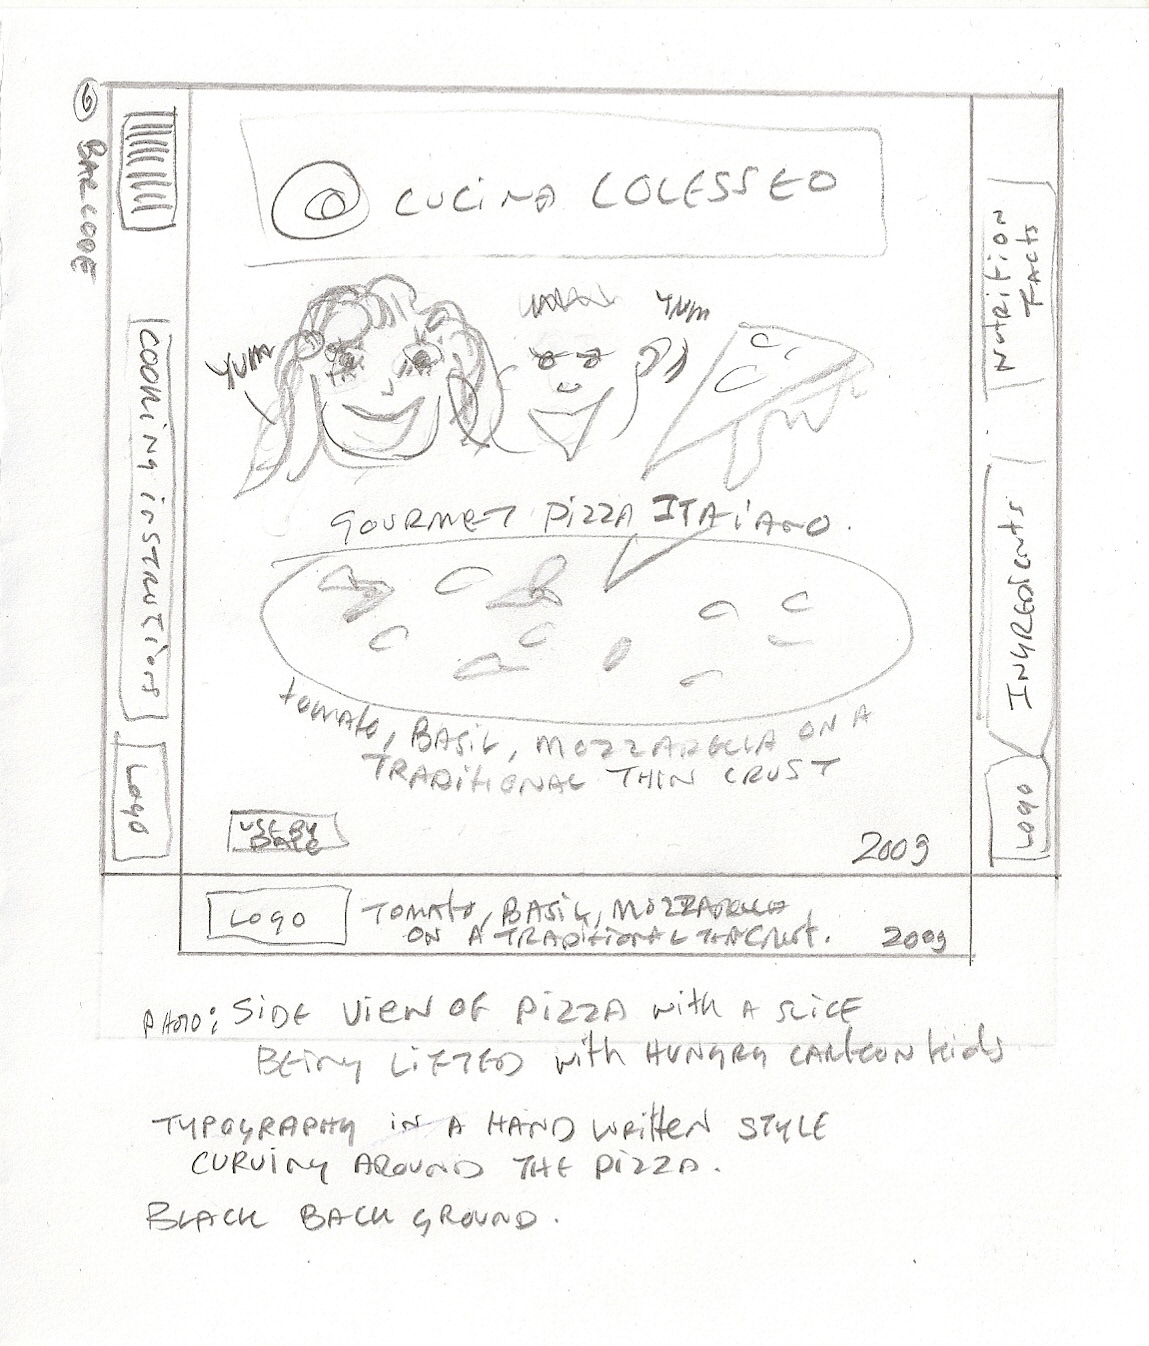 6
BARCODE
CUCINA COLESSEO
YUM
YUM
GOURMET PIZZA ITAIANO.
tomato, BASIL, MOZZARELLA ON A
TRADITIONAL THIN CRUST
USE BY
DATE
2009
COOKING INSTRUCTIONS
Logo
Nutrition
Facts
Ingredients
Logo
Logo
TOMATO, BASIL, MOZZARELLA
ON A TRADITIONAL
2009
PHOTO: SIDE VIEW OF PIZZA with A SLICE
BEING LIFTED with HUNGRY CARTOON kids
TYPOGRAPHY IN A HAND WRITTEN STYLE
CURVING AROUND THE PIZZA.
BLACK BACKGROUND.